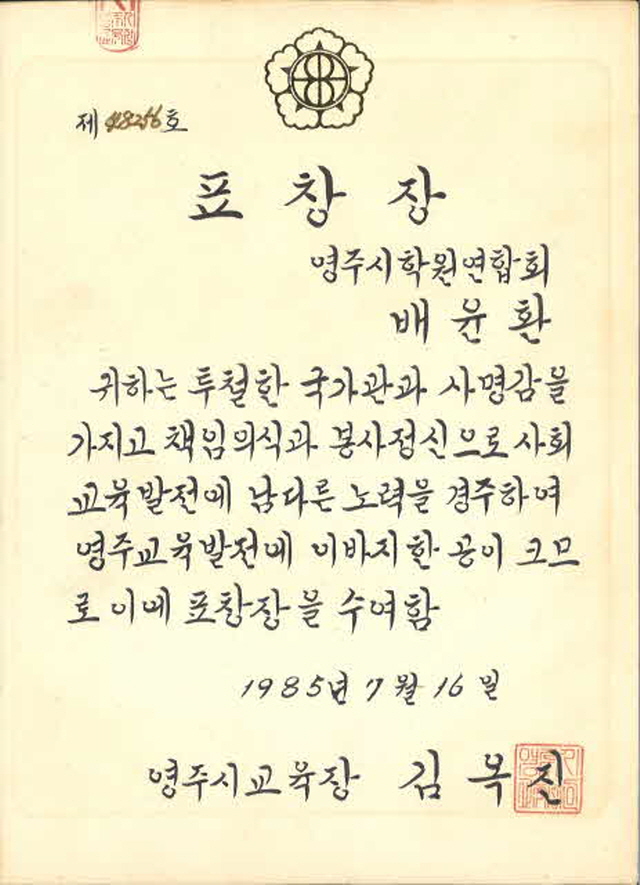 제 48256 호
표 창 장
영주시학원연합회
배 윤 환
귀하는 투철한 국가관과 사명감을
가지고 책임의식과 봉사정신으로 사회
교육발전에 남다른 노력을 경주하여
영주교육발전에 이바지한 공이 크므
로 이에 표창장을 수여함
1985년 7월 16일
영주시교육장 김 옥 진